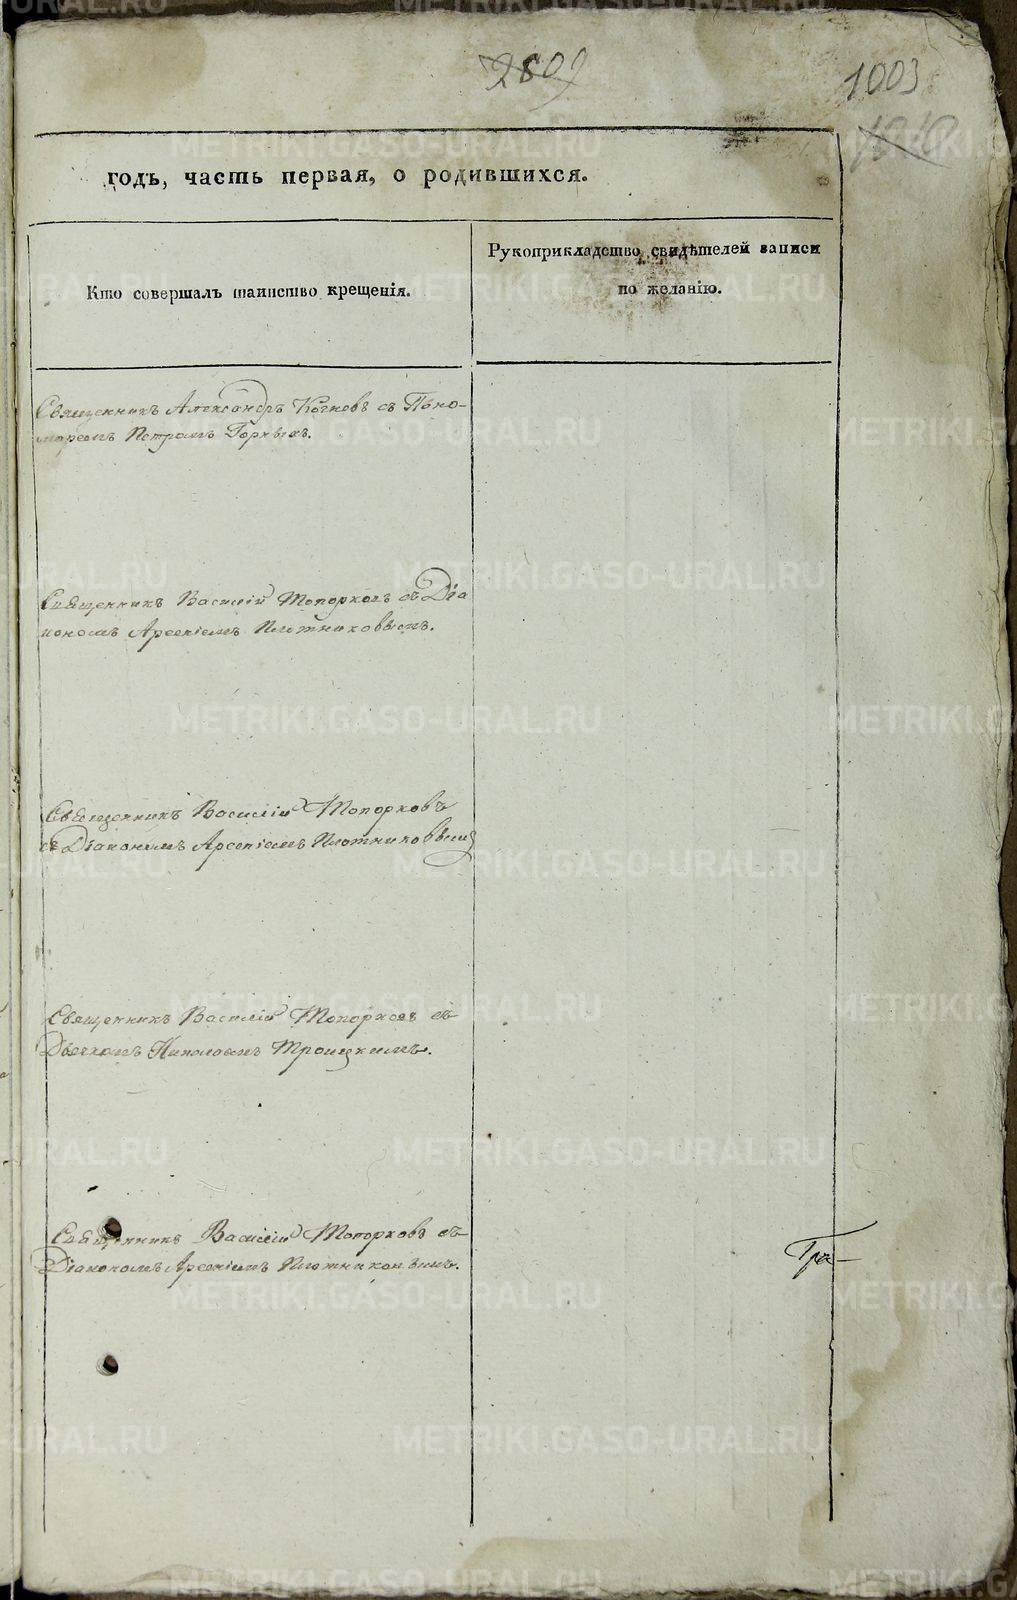 2809
1003
1010
годъ, часть первая, о родившихся.
Кто совершалъ таинство крещенія.
Рукоприкладство свидѣтелей записи
по желанію.
Священникъ Александръ съ Поно-
маремъ Петромъ Горныхъ.
Священникъ Василій Топорковъ съ Діа
кономъ Арсеніемъ Плотниковымъ.
Священникъ Василій Топорковъ
съ Діакономъ Арсеніемъ Плотниковымъ
Священникъ Василій Топорковъ съ
Дьячкомъ Николаемъ Троицкимъ.
Священникъ Василій Топорковъ съ
Діакономъ Арсеніемъ Плотниковымъ.
METRIKI.GASO-URAL.RU